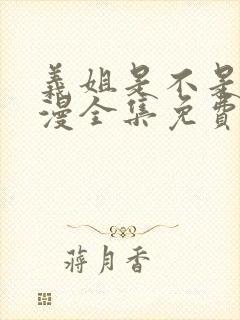 義姐是不是
漫全集免費
蔣月香